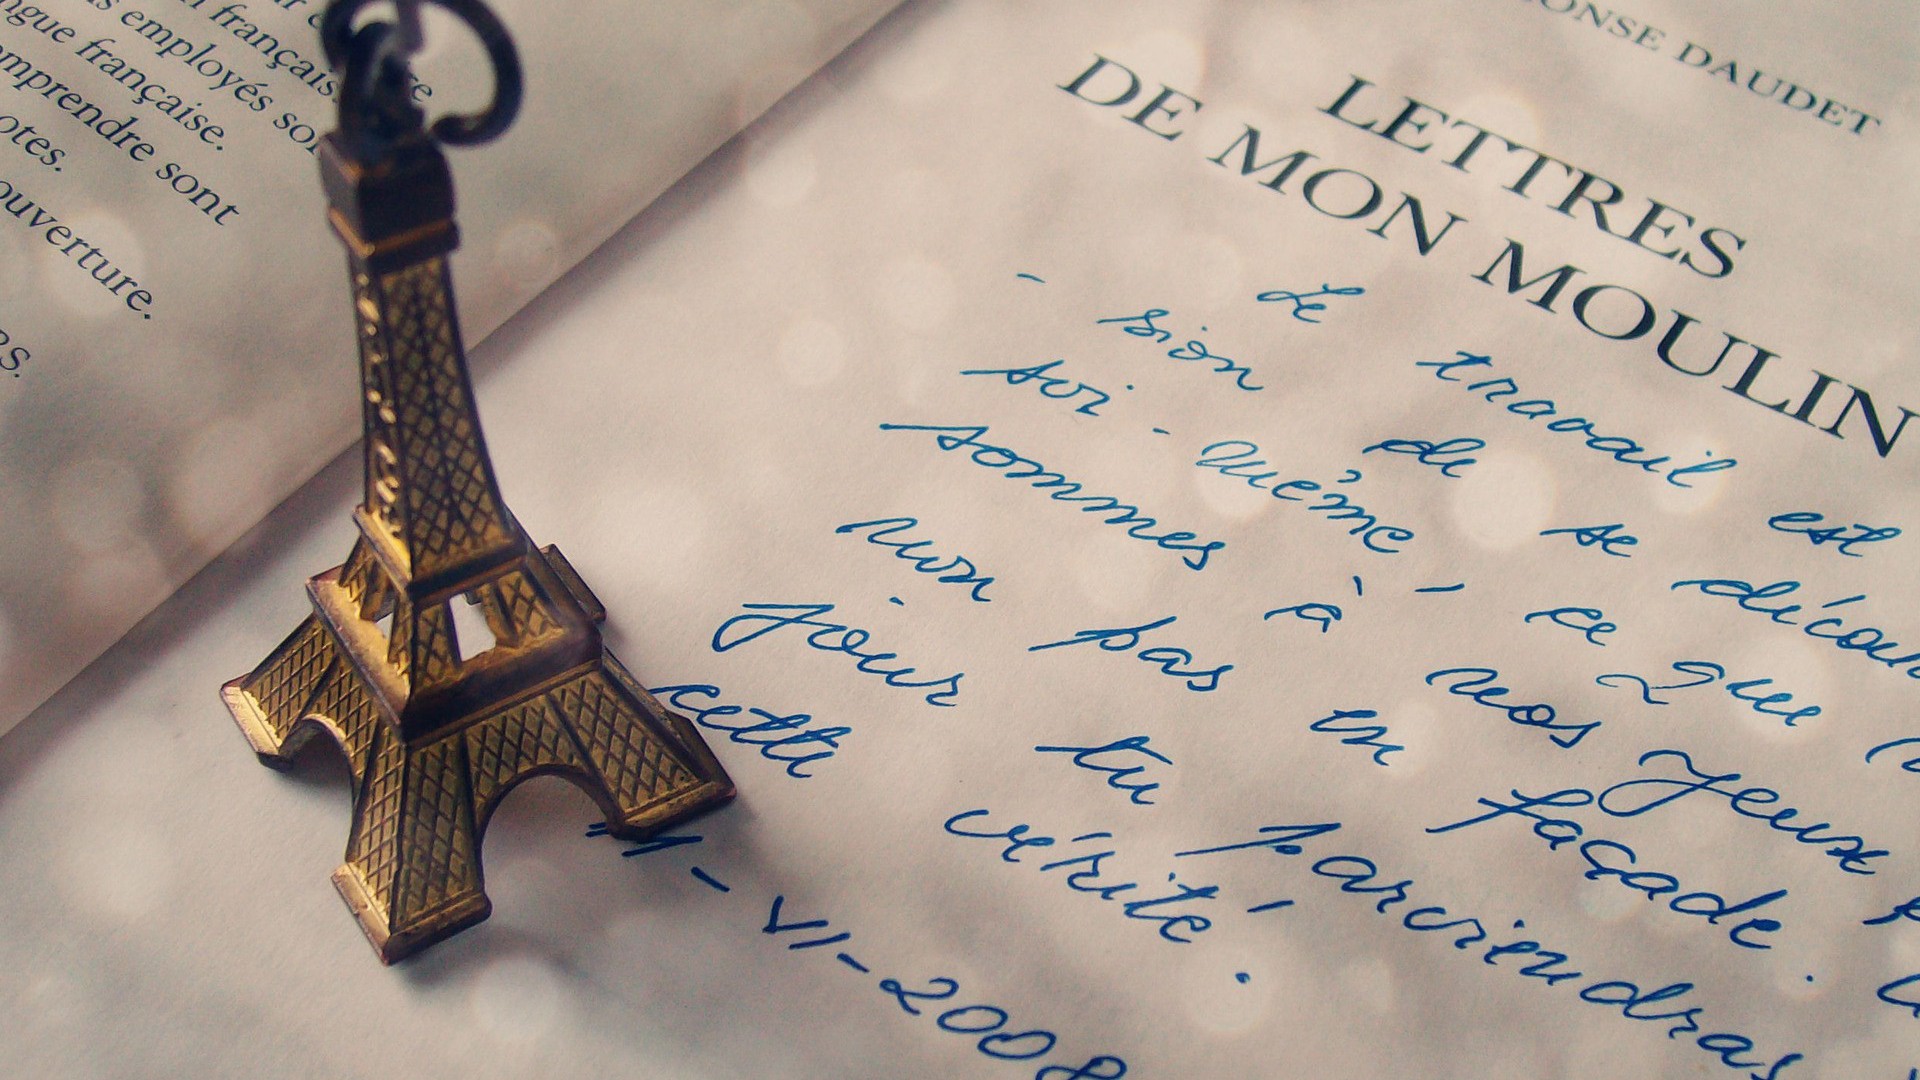 français,
employés
française.
sont
ALPHONSE DAUDET
LETTRES
DE MON MOULIN
Le travail est
- sion de se
soi-même, ce que
sommes à nos yeux
non pas en façade.
jour tu parviendras
cette vérité.
VI-2008